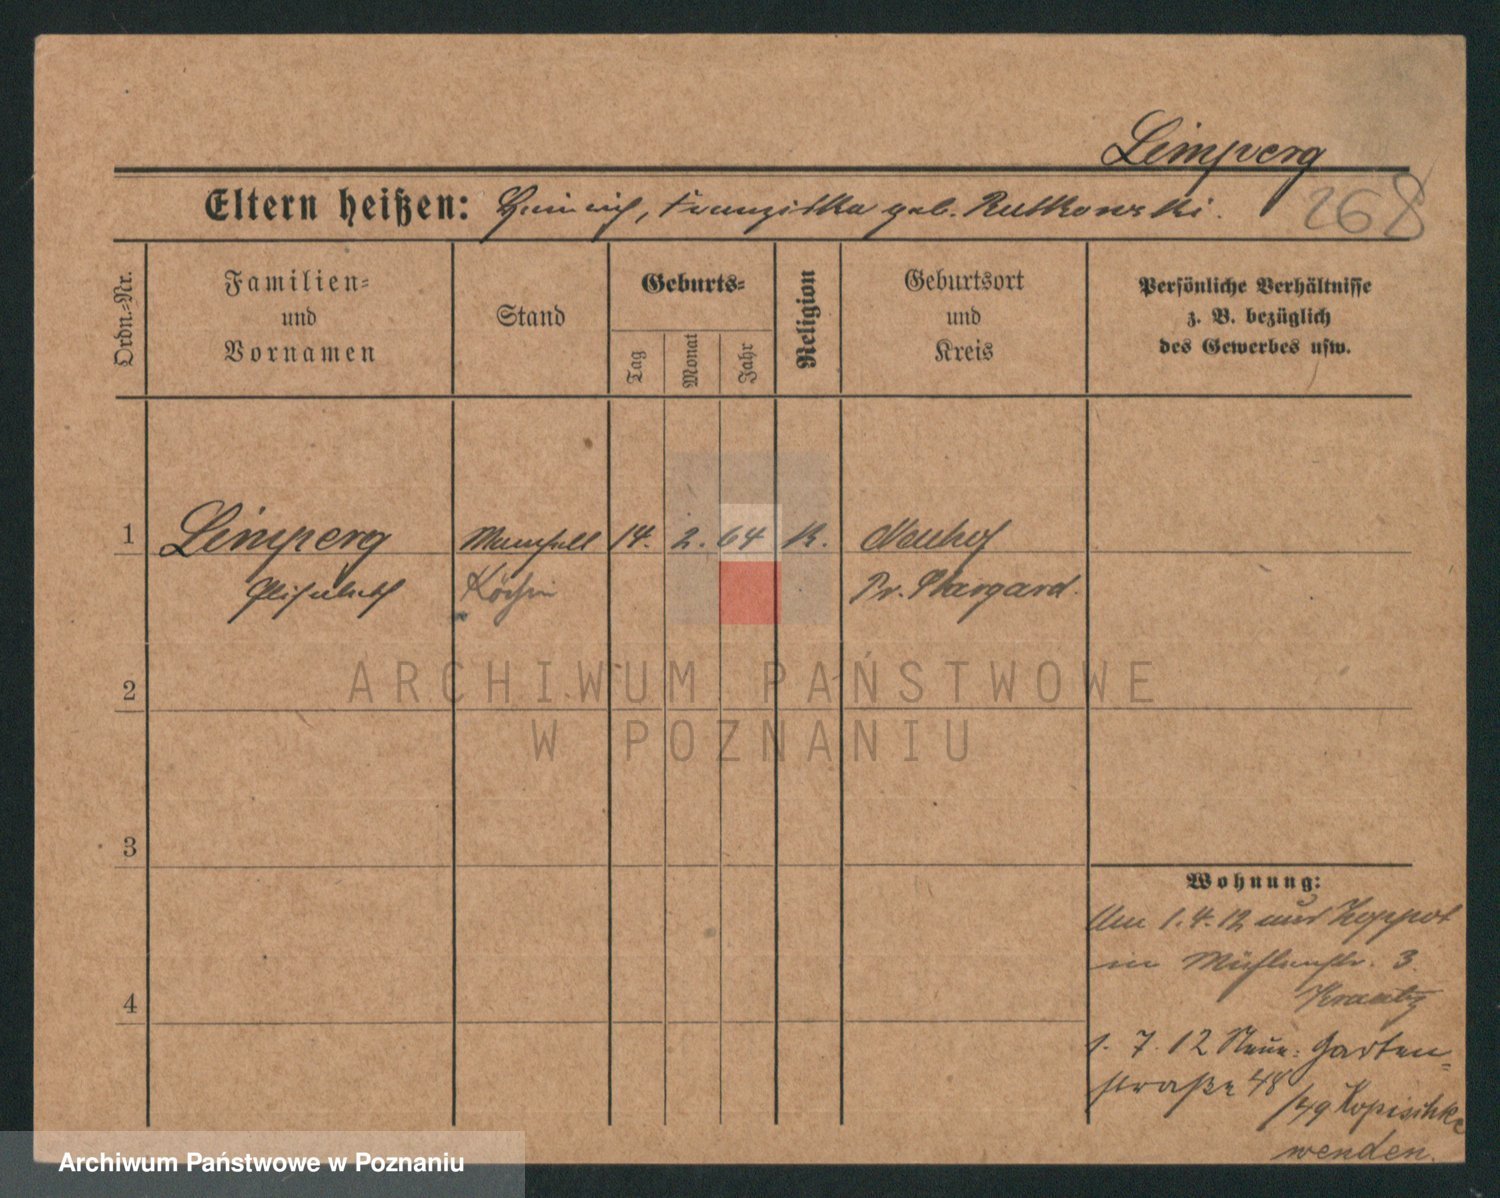 Limperg
268
Eltern heißen: Heinrich, Franziska geb. Rutkowski.
Ordn.-Nr.
Familien-
und
Vornamen
Stand
Geburts-
Tag
Monat
Jahr
Religion
Geburtsort
und
Kreis
Persönliche Verhältnisse
z. B. bezüglich
des Gewerbes usw.
1 Limperg Mamsell 14. 2. 64 K. Neuhof
Elisabeth Köchin Pr. Stargard.
ARCHIWUM PAŃSTWOWE
W POZNANIU
2
3
4
Wohnung:
Am 1.4.12 aus Zoppot
in Mühlenstr. 3.
Krantz
1. 7. 12 Neue: Garten-
straße 48
Kopischke
wenden.
Archiwum Państwowe w Poznaniu